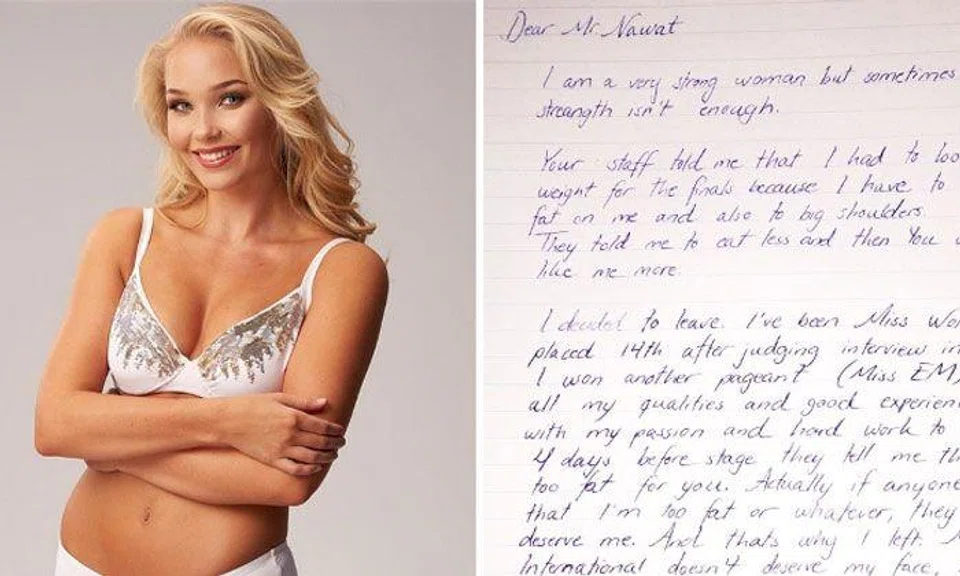 Dear Mr. Nawat
I am a very strong woman but sometimes
streangth isn't enough.
Your staff told me that I had to loo
weight for the finals because I have to
fat on me and also to big shoulders.
They told me to eat less and then You
like me more.
I decided to leave. I've been Miss Wor
placed 14th after judging interview in
I won another pageant (Miss EM)
all my qualities and good experien
with my passion and hard work to
4 days before stage they tell me th
too fat for you. Actually if anyone
that I'm too fat or whatever, they
deserve me. And thats why I left.
International doesn't deserve my face,